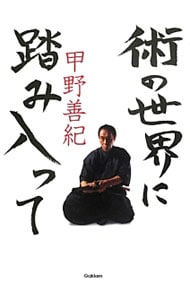 術の世界に
踏み入って
甲野善紀
Gakken